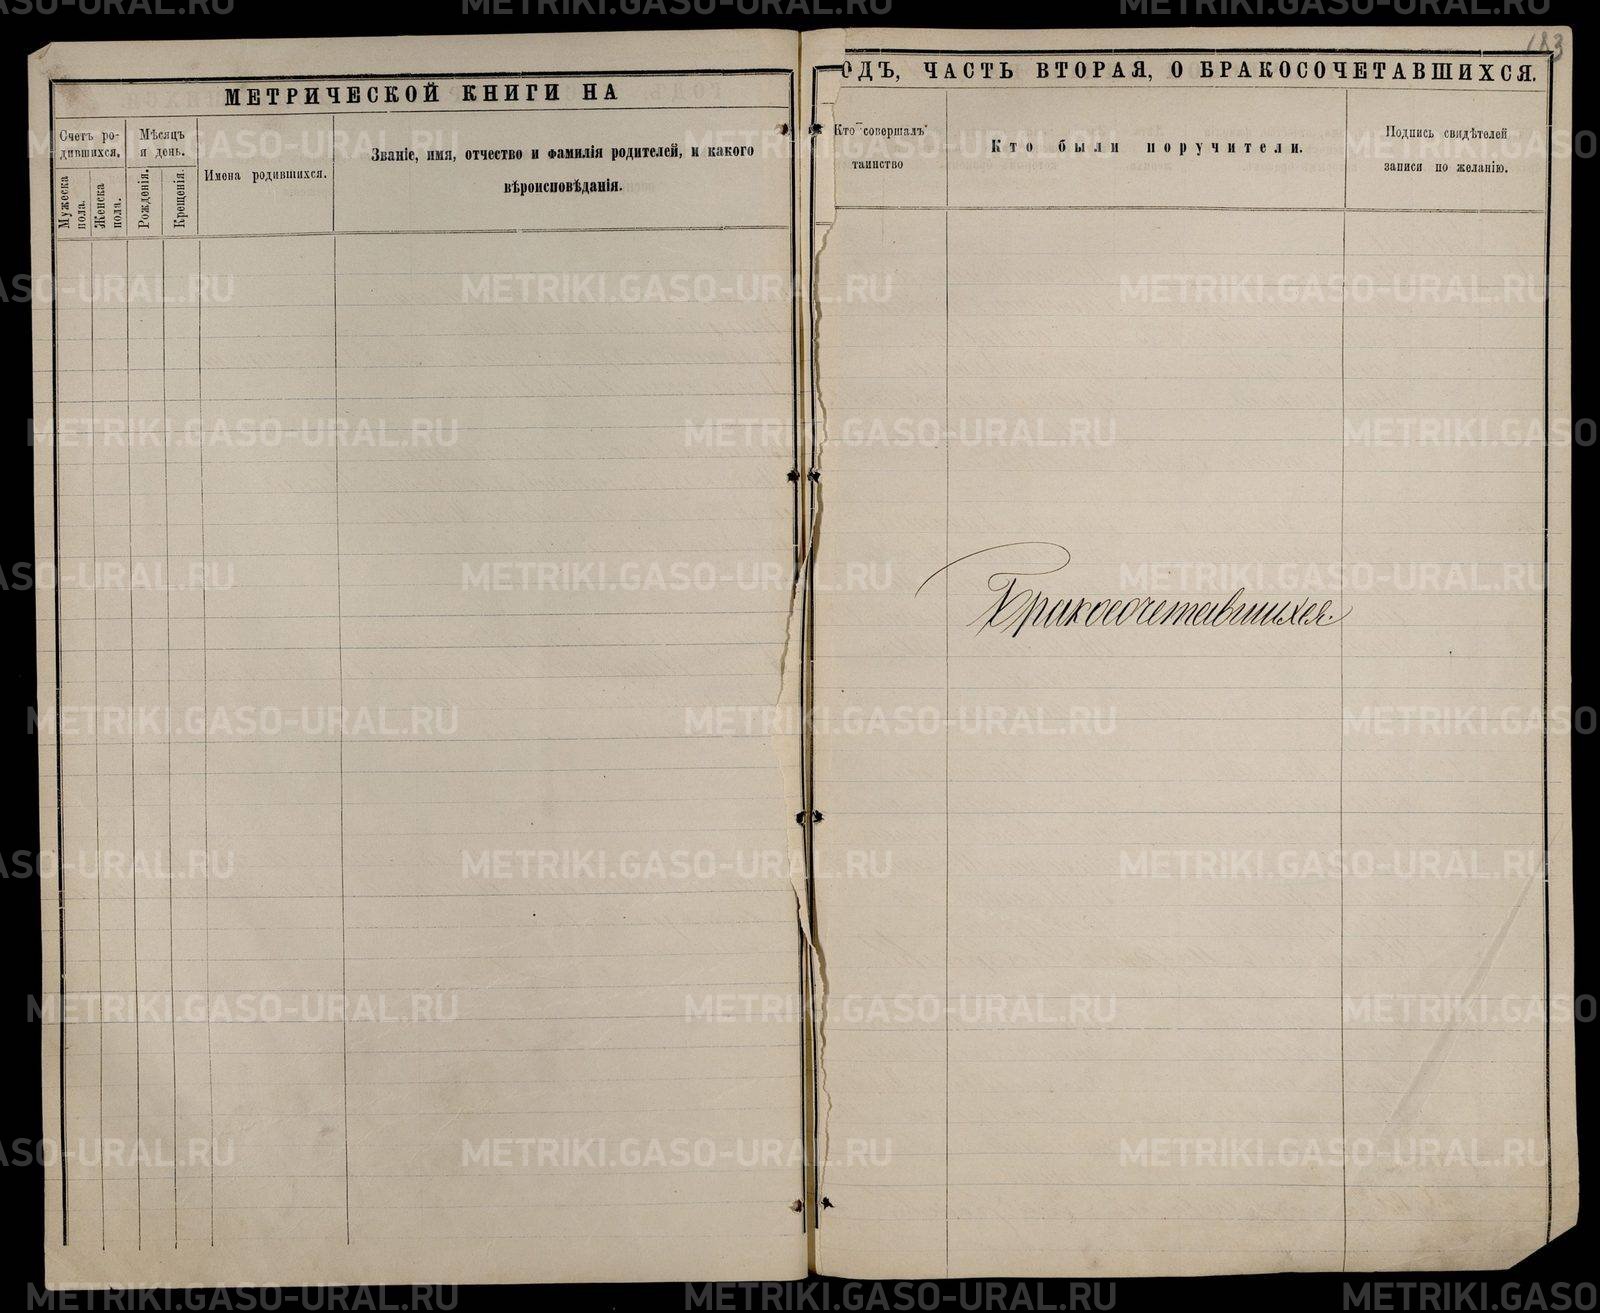 183
МЕТРИЧЕСКОЙ КНИГИ НА
Счетъ ро-
дившихся,
Мѣсяцъ
и день.
Мужеска
пола.
Женска
пола.
Рожденія.
Крещенія.
Имена родившихся.
Званіе, имя, отчество и фамилія родителей, и какого
вѣроисповѣданія.
ОДЪ, ЧАСТЬ ВТОРАЯ, О БРАКОСОЧЕТАВШИХСЯ.
Кто совершалъ
таинство
Кто были поручители.
Подпись свидѣтелей
записи по желанію.
Бракосочетавшихся.
METRIKI.GASO-URAL.RU